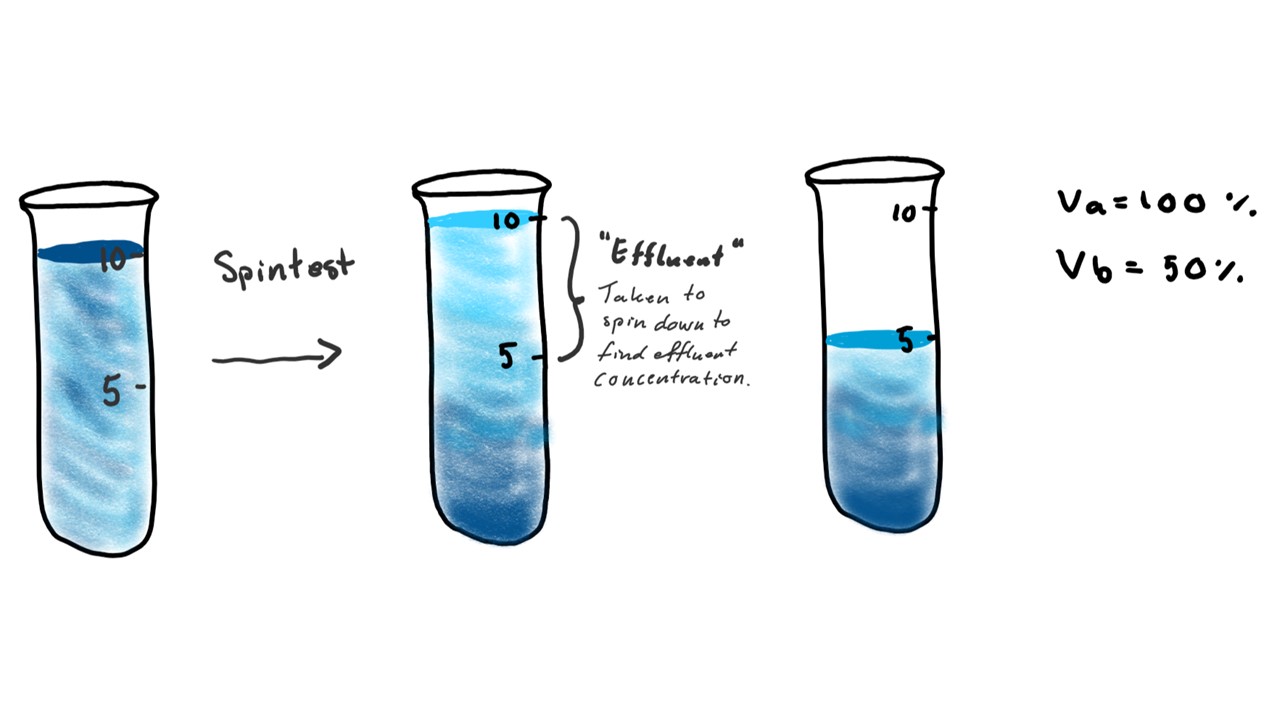 10
5
Spintest
10
5
"Effluent"
Taken to
spin down to
find effluent
concentration.
10
5
Va = 100 %.
Vb = 50 %.